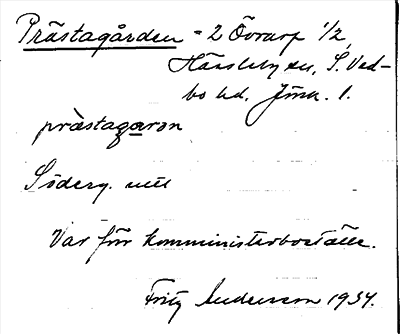 Prästagården = 2 Övrarp 1/2,
Hässleby sn, S. Ved-
bo hd, Jönk. l.
prästagaron
Söderg.
Var förr komministerboställe.
Fritz Andersson 1934.